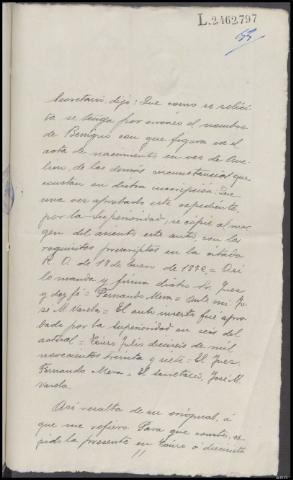 L.2462.797
Secretario, dijo: Que como se solici-
ta se tenga por erróneo el nombre
de Benigno con que figura en el
acta de nacimiento en vez de Ave-
lino, de las demás circunstancias que
constan en dicha inscripción. Que
una vez aprobado este expediente
por la Superioridad, se copie al mar-
gen del asiento este auto, con los
requisitos prescriptos en la citada
R. O. de 18 de Enero de 18 = Así
lo manda y firma dicho Sr. Juez
y doy fé = Fernando Mera = Ante mí, Jo-
se M. Varela = El auto inserto fué apro-
bado por la Superioridad en seis del
actual = Touro Julio dieciseis de mil
novecientos treinta y siete = El Juez,
Fernando Mera = El Secretario, José M.
Varela.
Así resulta de su original, á
que me refiero. Para que conste, ex-
pido la presente en Touro á dieciseis